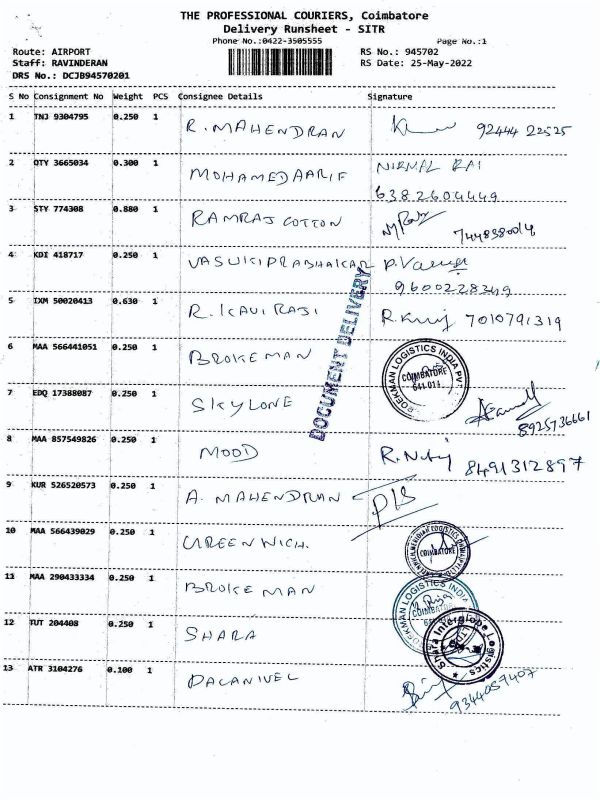 THE PROFESSIONAL COURIERS, Coimbatore
Delivery Runsheet - SITR
Phone No.:0422-3505555 Page No.:1
Route: AIRPORT RS No.: 945702
Staff: RAVINDERAN RS Date: 25-May-2022
DRS No.: DCJB94570201
S No Consignment No Weight PCS Consignee Details Signature
1 TNJ 9304795 0.250 1 R. MAHENDRAN 92444 22525
2 QTY 3665034 0.300 1 MOHAMED AARIF NIRMAL RAJ
6382604449
3 STY 774308 0.880 1 RAMRAJ COTTON 7448380014
4 KDI 418717 0.250 1 VASUKIPRABHAKAR
9600228349
5 IXM 50020413 0.630 1 R. KAVI RAJ 7010791319
DOCUMENT DELIVERY
6 MAA 566441051 0.250 1 BROKE MAN
LOGISTICS INDIA
COIMBATORE
641 014
7 EDQ 17388087 0.250 1 SKYLONE
8925736661
8 MAA 857549826 0.250 1 MOOD 8491312897
9 KUR 526520573 0.250 1 A. MAHENDRAN
10 MAA 566439029 0.250 1 GREENWICH.
COIMBATORE
11 MAA 290433334 0.250 1 BROKE MAN
LOGISTICS INDIA
12 TUT 204408 0.250 1 SHARA
Interglobe Logistics
13 ATR 3104276 0.100 1 PALANIVEL
9344057407